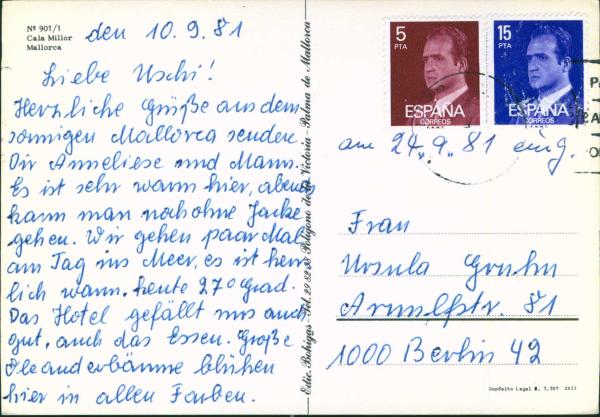 Nº 901/1
Cala Millor
Mallorca
den 10.9.81
Liebe Uschi!
Herzliche Grüße aus dem
sonnigen Mallorca senden
Dir Anneliese und Mann.
Es ist sehr warm hier, abends
kann man noch ohne Jacke
gehen. Wir gehen paar Mal
am Tag ins Meer, es ist herr
lich warm. heute 27° Grad.
Das Hotel gefällt uns auch
gut, auch das Essen. Große
Oleanderbäume blühen
hier in allen Farben.
Edic. Bohigas - Tel. - Polígono de la Victoria - Palma de Mallorca
5
PTA
ESPAÑA
CORREOS
15
PTA
ESPAÑA
CORREOS
am 24.9.81 eing.
Frau
Ursula
81
1000 Berlin 42
Depósito Legal B. XXII